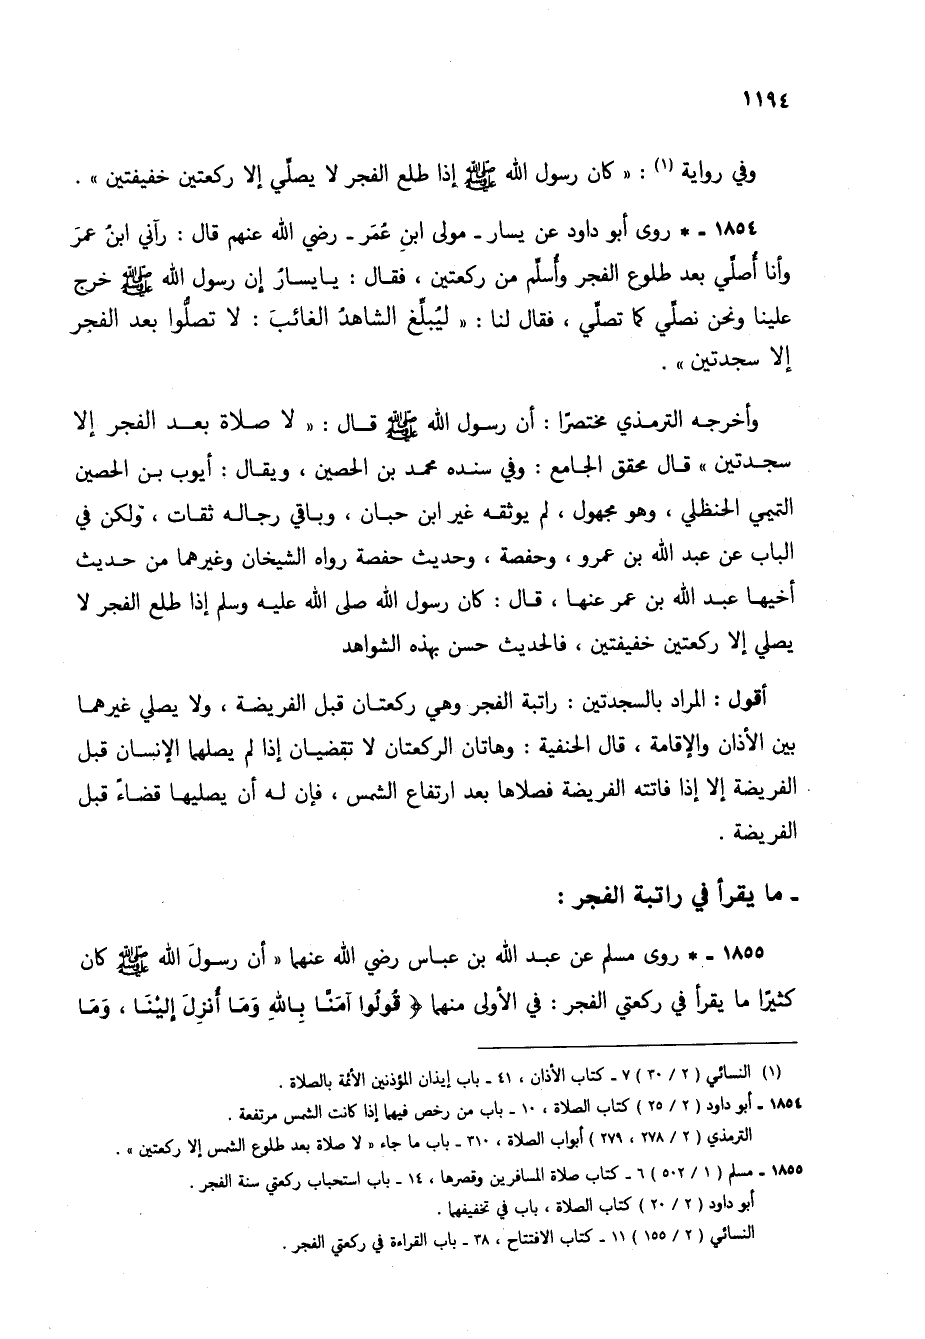 ١١٩٤
وفي رواية (١) : « كان رسول الله ﷺ إذا طلع الفجر لا يصلِّي إلا ركعتين خفيفتين » .
١٨٥٤ ـ * روى أبو داود عن يسار ـ مولى ابنِ عُمَر ـ رضي الله عنهم قال : رآني ابنُ عمرَ
وأنا أُصلِّي بعد طلوع الفجر وأُسلِّم من ركعتين ، فقـال : يـايسـارُ إن رسول الله ﷺ خرج
علينا ونحن نصلِّي كما تصلِّي ، فقال لنا : « ليُبلِّغ الشاهدُ الغائبَ : لا تصلُّوا بعد الفجر
إلا سجدتين » .
وأخرجـه الترمـذي مختصرًا : أن رسـول الله ﷺ قـال : « لا صـلاة بعـد الفجر إلا
سجـدتين » قـال محقق الجـامع : وفي سنـده محمـد بن الحصين ، ويقـال : أيوب بـن الحصين
التميمي الحنظلي ، وهو مجهول ، لم يوثقـه غير ابن حبـان ، وبـاقي رجـالـه ثقـات ، ولكن في
الباب عن عبد الله بن عمرو ، وحفصة ، وحديث حفصة رواه الشيخان وغيرهما من حـديث
أخيهـا عبـد الله بن عمر عنهـا ، قـال : كان رسول الله صلى الله عليـه وسلم إذا طلع الفجر لا
يصلي إلا ركعتين خفيفتين ، فـالحديث حسن بهذه الشواهد
أقول : المراد بالسجدتين : راتبة الفجر وهي ركعتـان قبل الفريضـة ، ولا يصلي غيرهمـا
بين الأذان والإقامة ، قال الحنفية : وهاتان الركعتان لا تقضيـان إذا لم يصلهما الإنسـان قبل
الفريضة إلا إذا فاتته الفريضة فصلاها بعد ارتفاع الشمس ، فإن لـه أن يصليهـا قضـاءً قبل
الفريضة .
ـ ما يقرأ في راتبة الفجر :
١٨٥٥ ـ * روى مسلم عن عبـد الله بن عبـاس رضي الله عنهما « أن رسـولَ الله ﷺ كان
كثيرًا ما يقرأ في ركعتي الفجر : في الأولى منهما ﴿ قُولُوا آمَنَّـا بِـاللهِ وَمَـا أُنزِلَ إليْنَـا ، وَمَـا
(١) النسائي ( ٢ / ٣٠ ) ٧ ـ كتاب الأذان ، ٤١ ـ باب إيذان المؤذنين الأئمة بالصلاة .
١٨٥٤ ـ أبو داود ( ٢ / ٢٥ ) كتاب الصلاة ، ١٠ ـ باب من رخص فيهما إذا كانت الشمس مرتفعة .
الترمذي ( ٢ / ٢٧٨ ، ٢٧٩ ) أبواب الصلاة ، ٣١٠ ـ باب ما جاء « لا صلاة بعد طلوع الشمس إلا ركعتين » .
١٨٥٥ ـ مسلم ( ١ / ٥٠٢ ) ٦ ـ كتاب صلاة المسافرين وقصرها ، ١٤ ـ باب استحباب ركعتي سنة الفجر .
أبو داود ( ٢ / ٢٠ ) كتاب الصلاة ، باب في تخفيفهما .
النسائي ( ٢ / ١٥٥ ) ١١ ـ كتاب الافتتاح ، ٣٨ ـ باب القراءة في ركعتي الفجر .